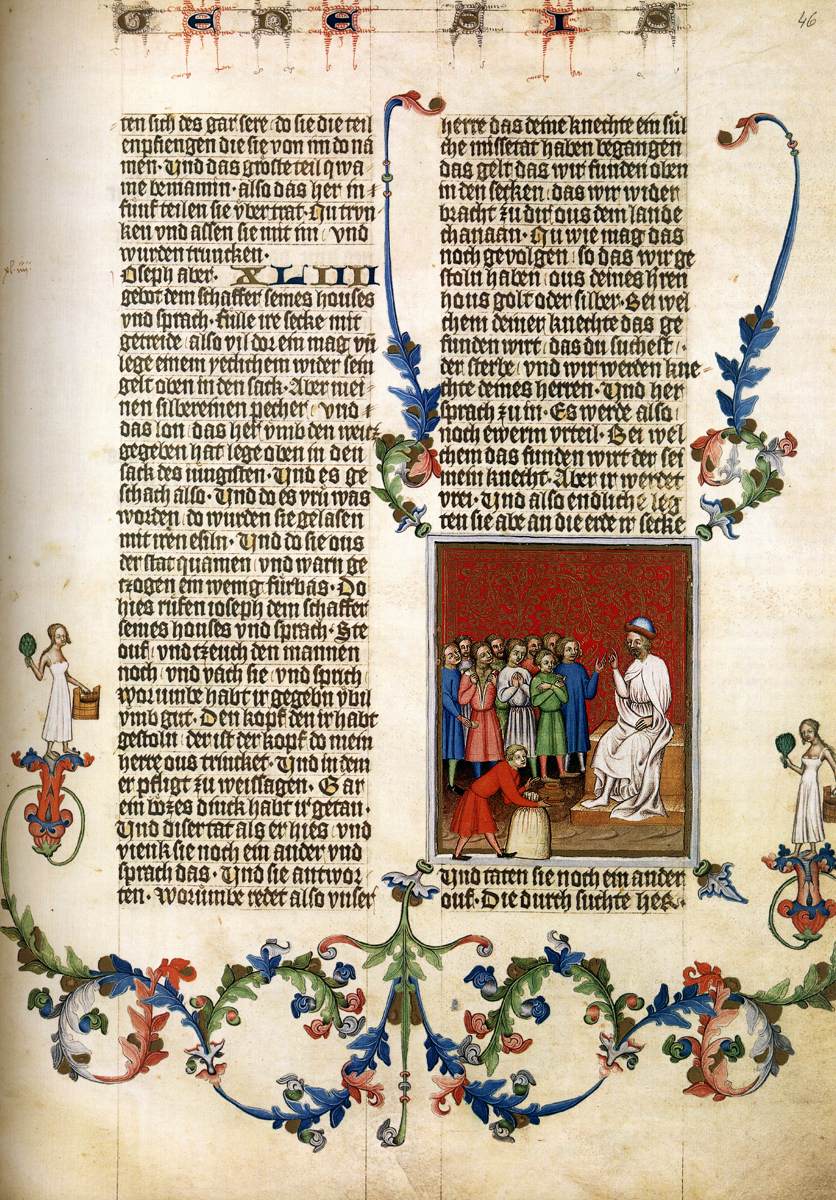 GENESIS
46
ten sich des gar sere do sie die teil
enpfiengen die sie von im do na
men · Und das groste teil qwa
me beniamin · also das her in
funf teilen sie ỽber trat · Qu trun
ken vnd assen sie mit im vnd
wurden truncken ·
Joseph aber · XLIIII
gebot dem schaffer seines houses
vnd sprach · Fulle ire secke mit
getreide also vil dor ein mag vnd
lege einem yechchem wider sein
gelt oben in den sack · Aber mei
nen silbereinen pecher vnd
das lon das her vmb den weitz
gegeben hat lege oben in den
sack des iungisten · Und es ge
schach also · Und do es vrü was
worden do wurden sie gelasen
mit iren esiln · Und do sie ous
der stat quamen vnd warn ge
tzogen ein wenig fürbas · Do
hies rüfen ioseph dem schaffer
seines houses vnd sprach · Ste
ouf vnd tzeuch den mannen
noch vnd vach sie vnd sprich
Worumbe habt ir gegebn ybil
vmb gut · Den kopf den ir habt
gestoln der ist der kopf do mein
herre ous trincket · Und in dem
er pfligt zu weissagen · Gar
ein bözes dinck habt ir getan ·
Und diser tat als er hies vnd
vienk sie noch ein ander vnd
sprach das · Und sie antwor
ten · Worümbe redet also vnser
herre das deine knechte ein sül
che missetat haben begangen
das gelt das wir funden oben
in den secken das wir wider
bracht zu dir ous dem lande
chanaan · Qu wie mag das
noch gevolgen so das wir ge
stoln haben ous deines hren
hous golt oder silber · Bei wel
chem deiner knechte das ge
funden wirt das du suchest
der sterbe vnd wir werden kne
chte deines herren · Und her
sprach zu in · Es werde also
noch ewerm vrteil · Bei wel
chem das funden wirt der sei
mein knecht · Aber ir werdet
vrei · Und also endliche leg
ten sie abe an die erde ir secke
Und taten sie noch ein ander
ouf · Die durch suchte her